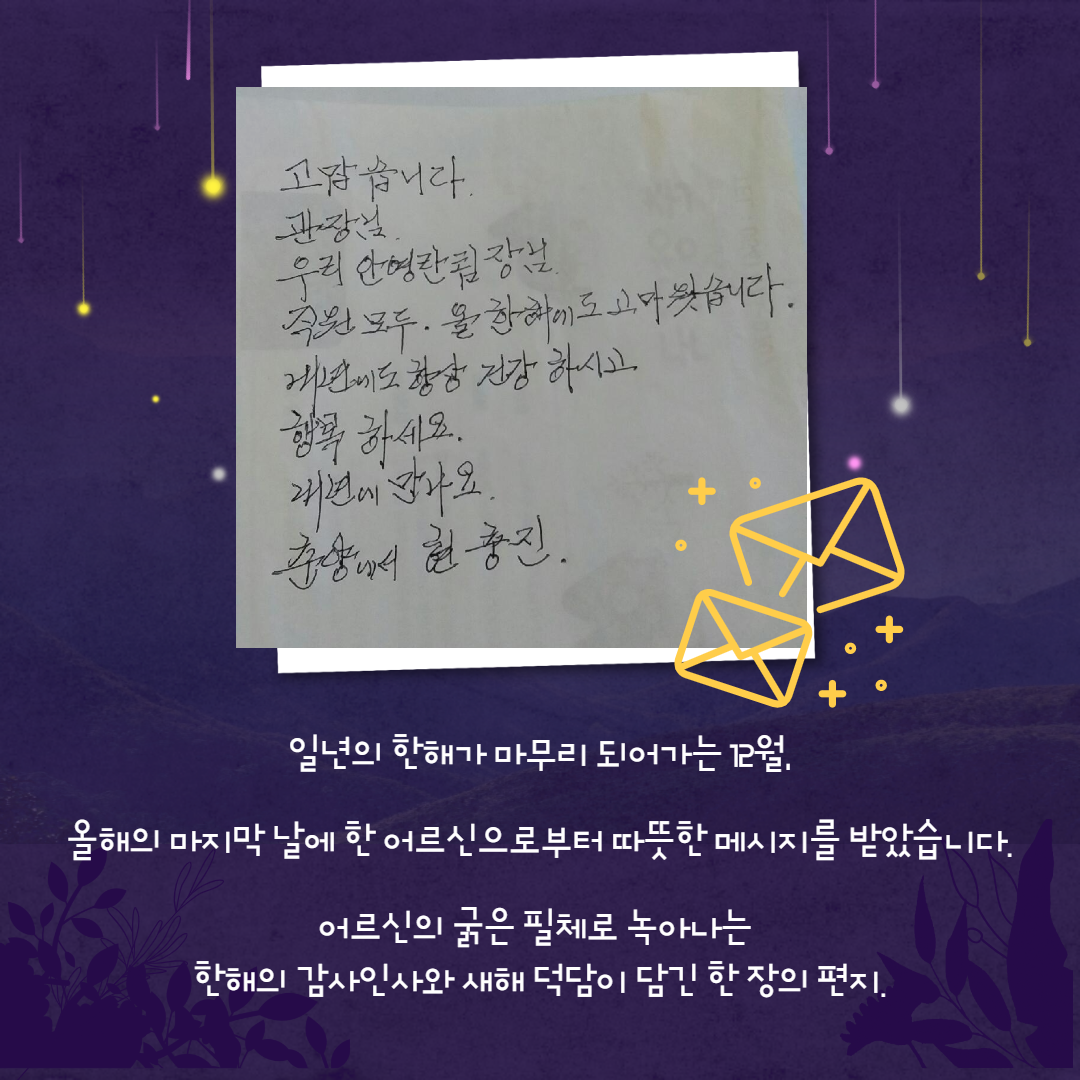 고맙습니다.
관장님.
우리 안영란팀장님.
직원 모두. 올 한해에도 고마웠습니다.
래년에도 항상 건강 하시고
행복 하세요.
래년에 만나요.
춘양에서 현 종진.
일년의 한해가 마무리 되어가는 12월,
올해의 마지막 날에 한 어르신으로부터 따뜻한 메시지를 받았습니다.
어르신의 굵은 필체로 녹아나는
한해의 감사인사와 새해 덕담이 담긴 한 장의 편지.